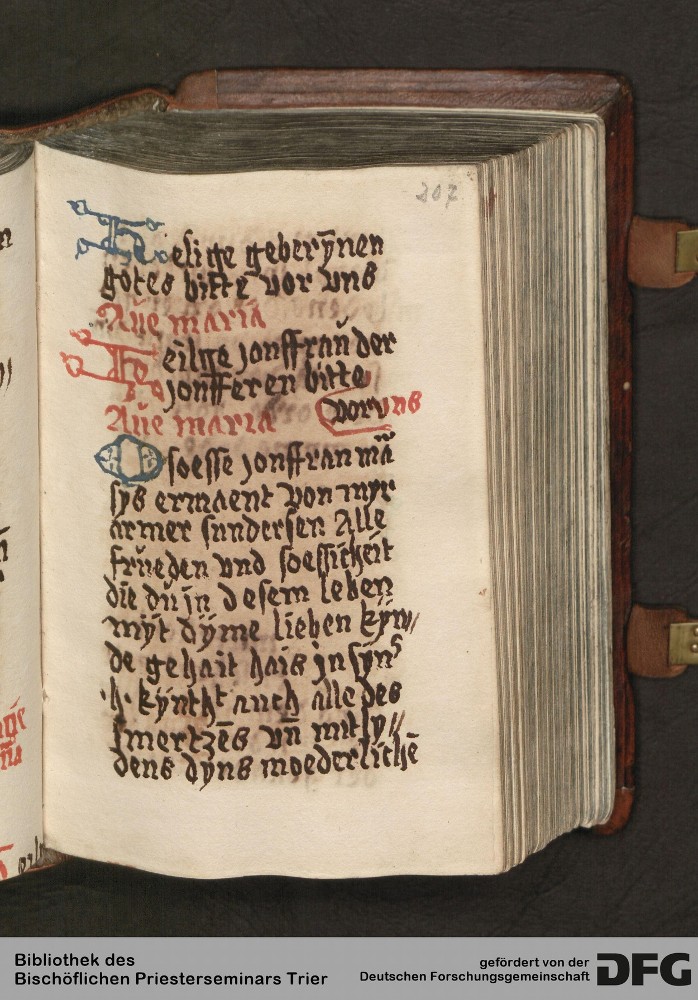 207
Helige geberȳnen
gotes bitte vor vns
Aue maria
Heilge jonffrau der
jonfferen bitte
Aue maria vor vns
O soesse jonffrau mā
sys ermaent von myr
armer sundersen Alle
frueden vnd soessicheit
die du jn desem leben
myt dyme lieben kyn//
de gehait hais jn syn
.h. kyntht auch alle des
smertzēs vn̄ mitly//
dens dyns moederlichē
Bibliothek des
Bischöflichen Priesterseminars Trier
gefördert von der
Deutschen Forschungsgemeinschaft DFG